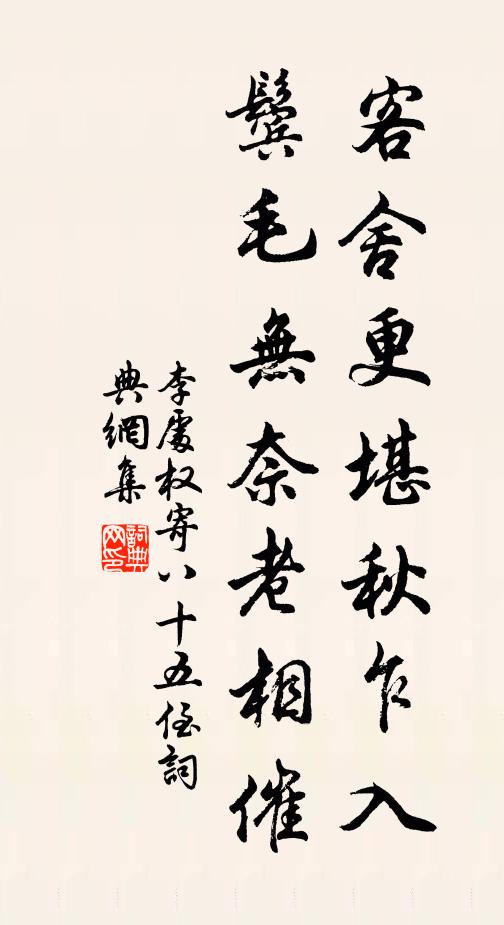 客舍更堪秋乍入
鬓毛無奈老相催
李處权寄八十五侄詞
典網集
詞典
网印